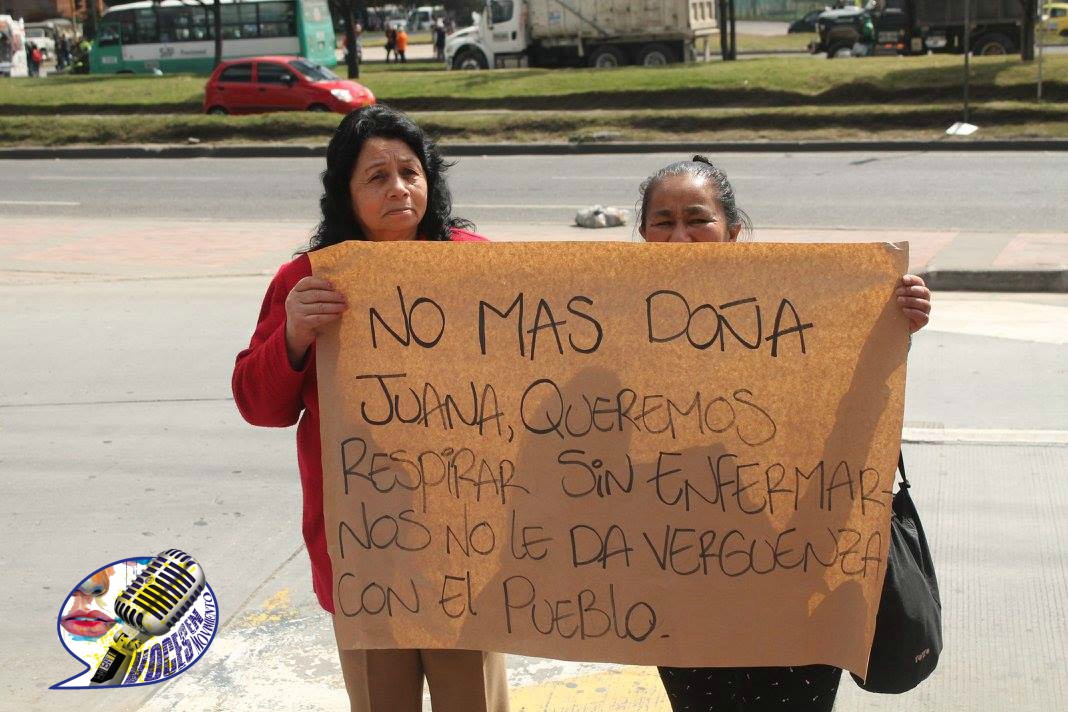 NO MAS DOÑA
JUANA, QUEREMOS
RESPIRAR SIN ENFERMAR-
NOS NO LE DA VERGUENZA
CON EL PUEBLO.
VOCES EN
MOVIMIENTO